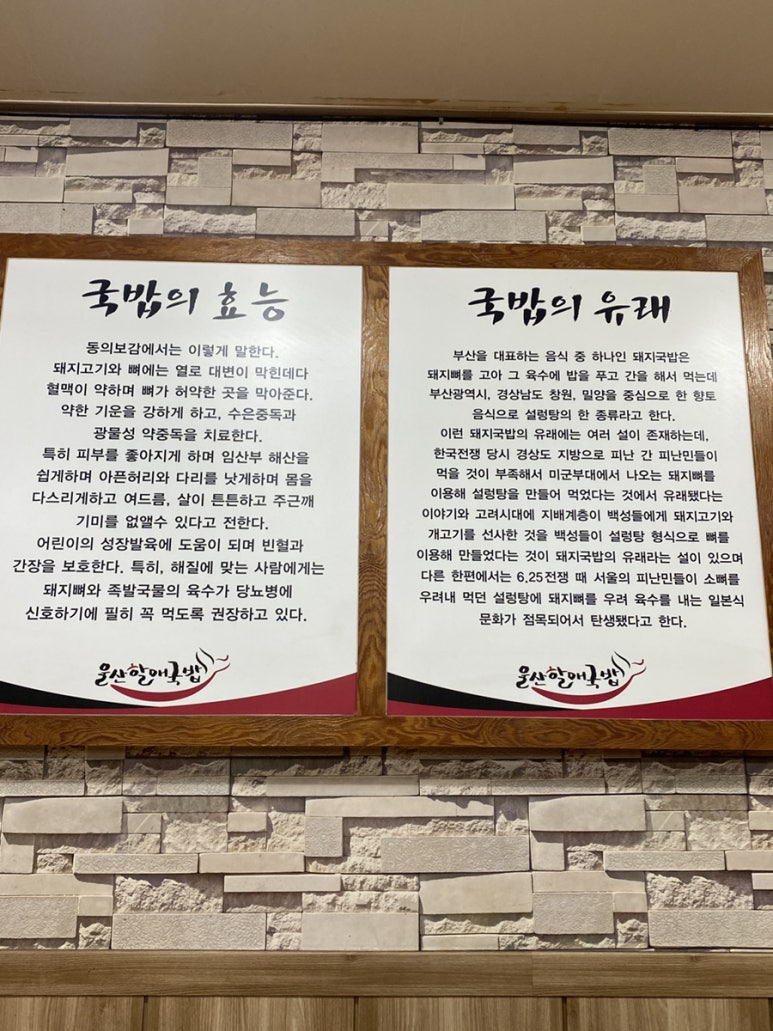 국밥의 효능
동의보감에서는 이렇게 말한다.
돼지고기와 뼈에는 열로 대변이 막힌데다
혈맥이 약하며 뼈가 허약한 곳을 막아준다.
약한 기운을 강하게 하고, 수은중독과
광물성 약중독을 치료한다.
특히 피부를 좋아지게 하며 임산부 해산을
쉽게하며 아픈허리와 다리를 낫게하며 몸을
다스리게하고 여드름, 살이 튼튼하고 주근깨
기미를 없앨수 있다고 전한다.
어린이의 성장발육에 도움이 되며 빈혈과
간장을 보호한다. 특히, 해질에 맞는 사람에게는
돼지뼈와 족발국물의 육수가 당뇨병에
신호하기에 필히 꼭 먹도록 권장하고 있다.
울산할매국밥
국밥의 유래
부산을 대표하는 음식 중 하나인 돼지국밥은
돼지뼈를 고아 그 육수에 밥을 푸고 간을 해서 먹는데
부산광역시, 경상남도 창원, 밀양을 중심으로 한 향토
음식으로 설렁탕의 한 종류라고 한다.
이런 돼지국밥의 유래에는 여러 설이 존재하는데,
한국전쟁 당시 경상도 지방으로 피난 간 피난민들이
먹을 것이 부족해서 미군부대에서 나오는 돼지뼈를
이용해 설렁탕을 만들어 먹었다는 것에서 유래됐다는
이야기와 고려시대에 지배계층이 백성들에게 돼지고기와
개고기를 선사한 것을 백성들이 설렁탕 형식으로 뼈를
이용해 만들었다는 것이 돼지국밥의 유래라는 설이 있으며
다른 한편에서는 6.25전쟁 때 서울의 피난민들이 소뼈를
우려내 먹던 설렁탕에 돼지뼈를 우려 육수를 내는 일본식
문화가 점목되어서 탄생됐다고 한다.
울산할매국밥